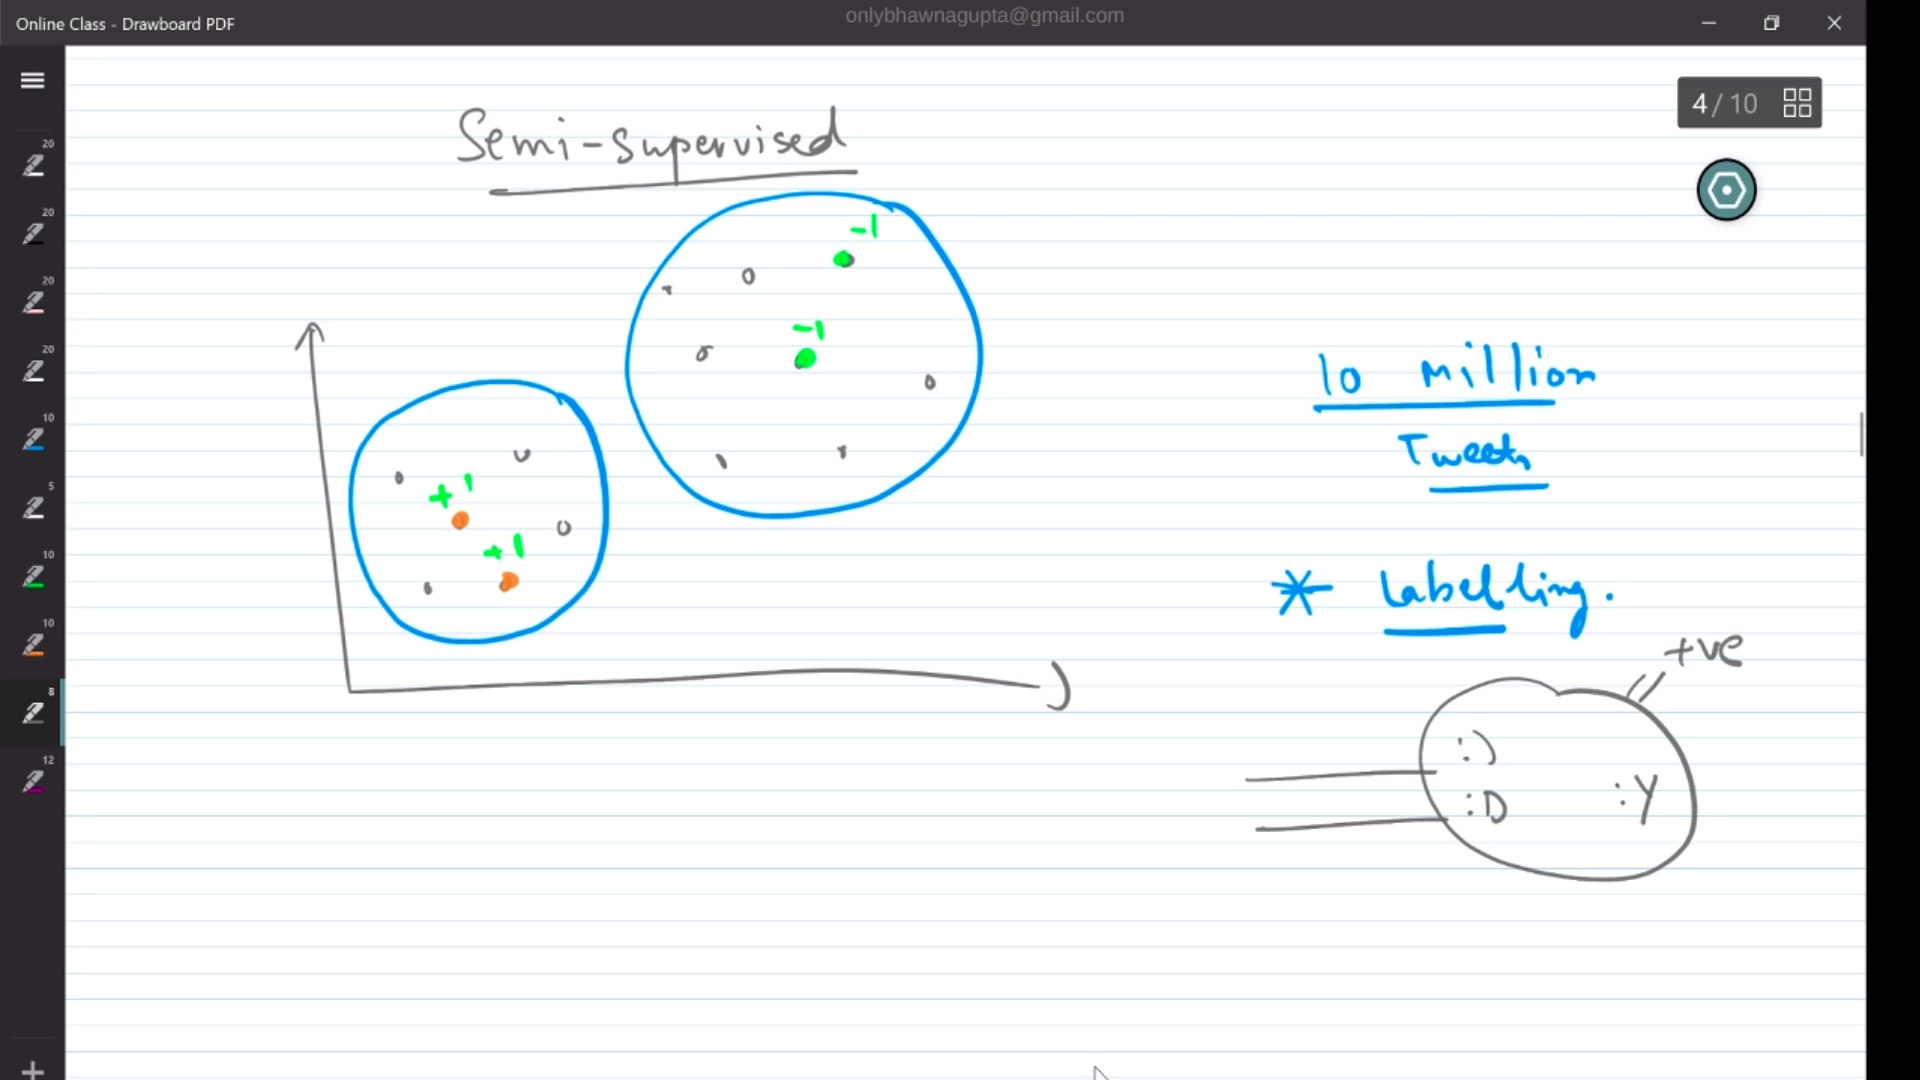 Online Class - Drawboard PDF
onlybhawnagupta@gmail.com
4 / 10
20
20
20
20
10
5
10
10
8
12
Semi-Supervised
-1
-1
+1
+1
10 Million
Tweets
* Labelling.
+ve
:)
:D
:Y